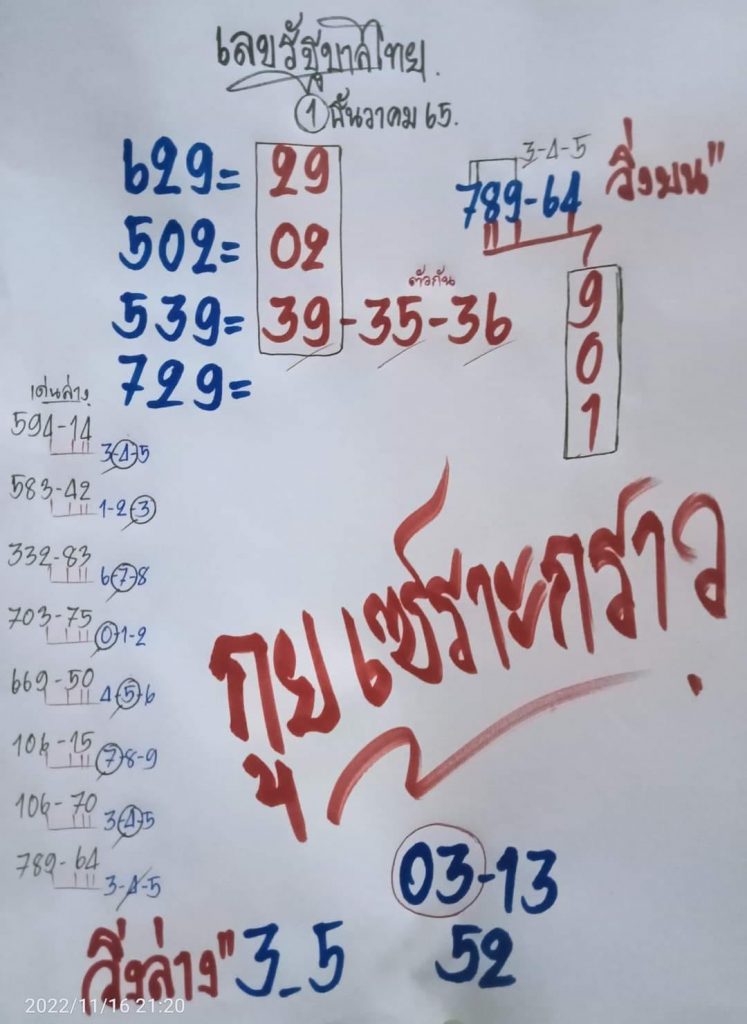 เลขรัฐบาลไทย.
1 ธันวาคม 65.
629= 29
502= 02
ตัวกัน
539= 39-35-36
729=
3-4-5
789-64 วิ่งบน"
9
0
1
เด่นล่าง.
594-14 3-4-5
583-42 1-2-3
332-83 6-7-8
703-75 0-1-2
669-50 4-5-6
106-15 7-8-9
106-70 3-4-5
789-64 3-4-5
03-13
52
วิ่งล่าง" 3-5
2022/11/16 21:20